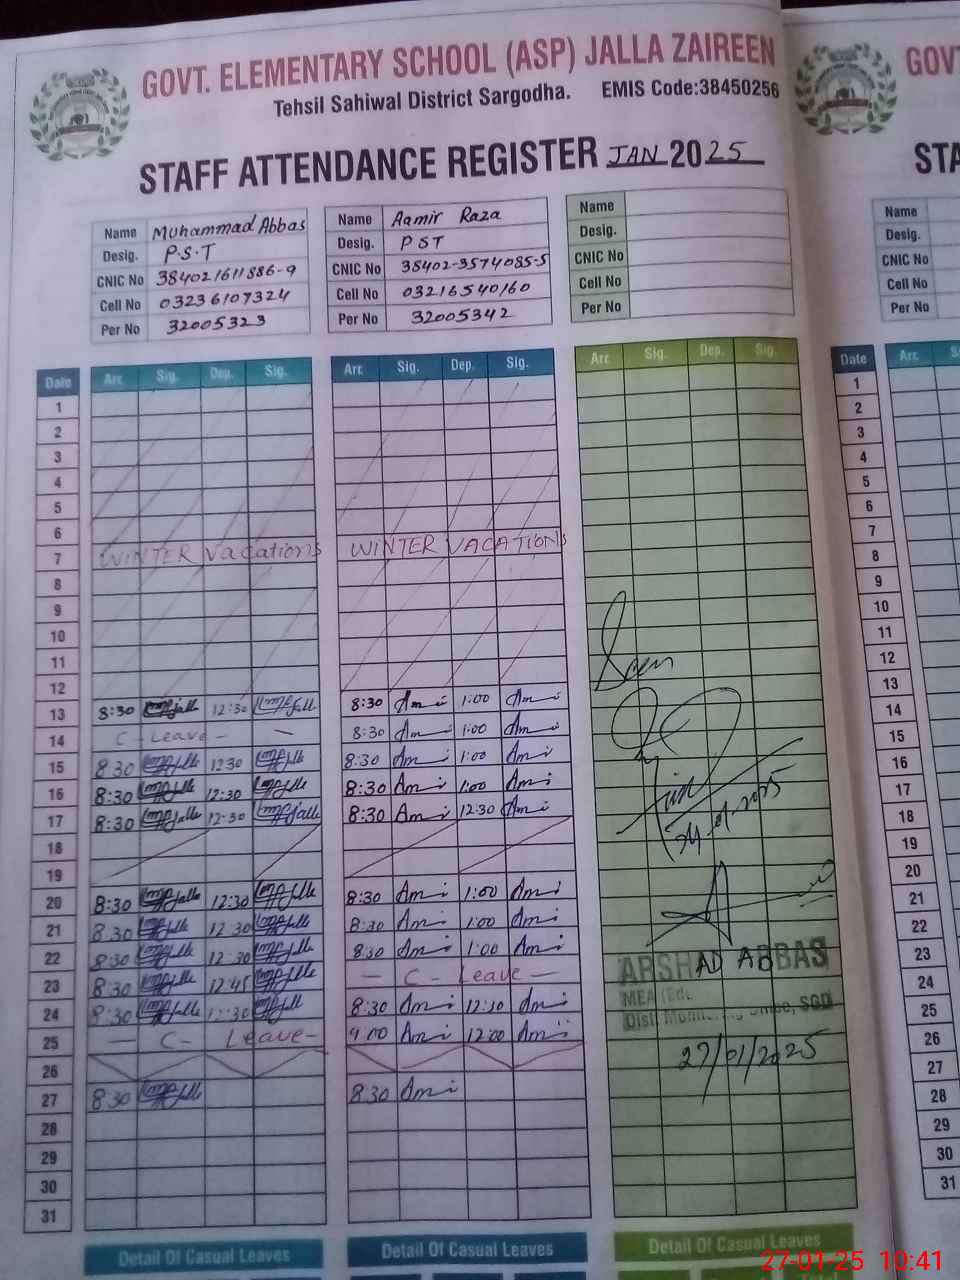 GOVT. ELEMENTARY SCHOOL (ASP) JALLA ZAIREEN
Tehsil Sahiwal District Sargodha. EMIS Code:38450256
STAFF ATTENDANCE REGISTER JAN 2025
Name Muhammad Abbas
Desig. P.S.T
CNIC No 384021611886-9
Cell No 03236107324
Per No 32005323
Name Aamir Raza
Desig. PST
CNIC No 38402-3574085-5
Cell No 03216540160
Per No 32005342
Name
Desig.
CNIC No
Cell No
Per No
Date Arr. Sig. Dep. Sig. Arr. Sig. Dep. Sig. Arr. Sig. Dep. Sig.
1
2
3
4
5
6
7 WINTER Vacations WINTER VACATIONS
8
9
10
11
12 Seen
13 8:30 12:30 8:30 Ami 1:00 Ami
14 C - Leave - 8:30 Ami 1:00 Ami
15 8:30 12:30 8:30 Ami 1:00 Ami
16 8:30 12:30 8:30 Ami 1:00 Ami
17 8:30 12:30 8:30 Ami 12:30 Ami
18
19
20 8:30 12:30 8:30 Ami 1:00 Ami
21 8:30 12:30 8:30 Ami 1:00 Ami
22 8:30 12:30 8:30 Ami 1:00 Ami
23 8:30 12:45 - C - Leave -
24 8:30 8:30 Ami 12:30 Ami
25 - C - Leave - 9:00 Ami 12:00 Ami
26
27 8:30 8:30 Ami
28
29
30
31
ARSHAD ABBAS
MEA
27/01/2025
Detail Of Casual Leaves Detail Of Casual Leaves Detail Of Casual Leaves
GOV
STA
Name
Desig.
CNIC No
Cell No
Per No
Date Arr.
1
2
3
4
5
6
7
8
9
10
11
12
13
14
15
16
17
18
19
20
21
22
23
24
25
26
27
28
29
30
31
27-01-25 10:41